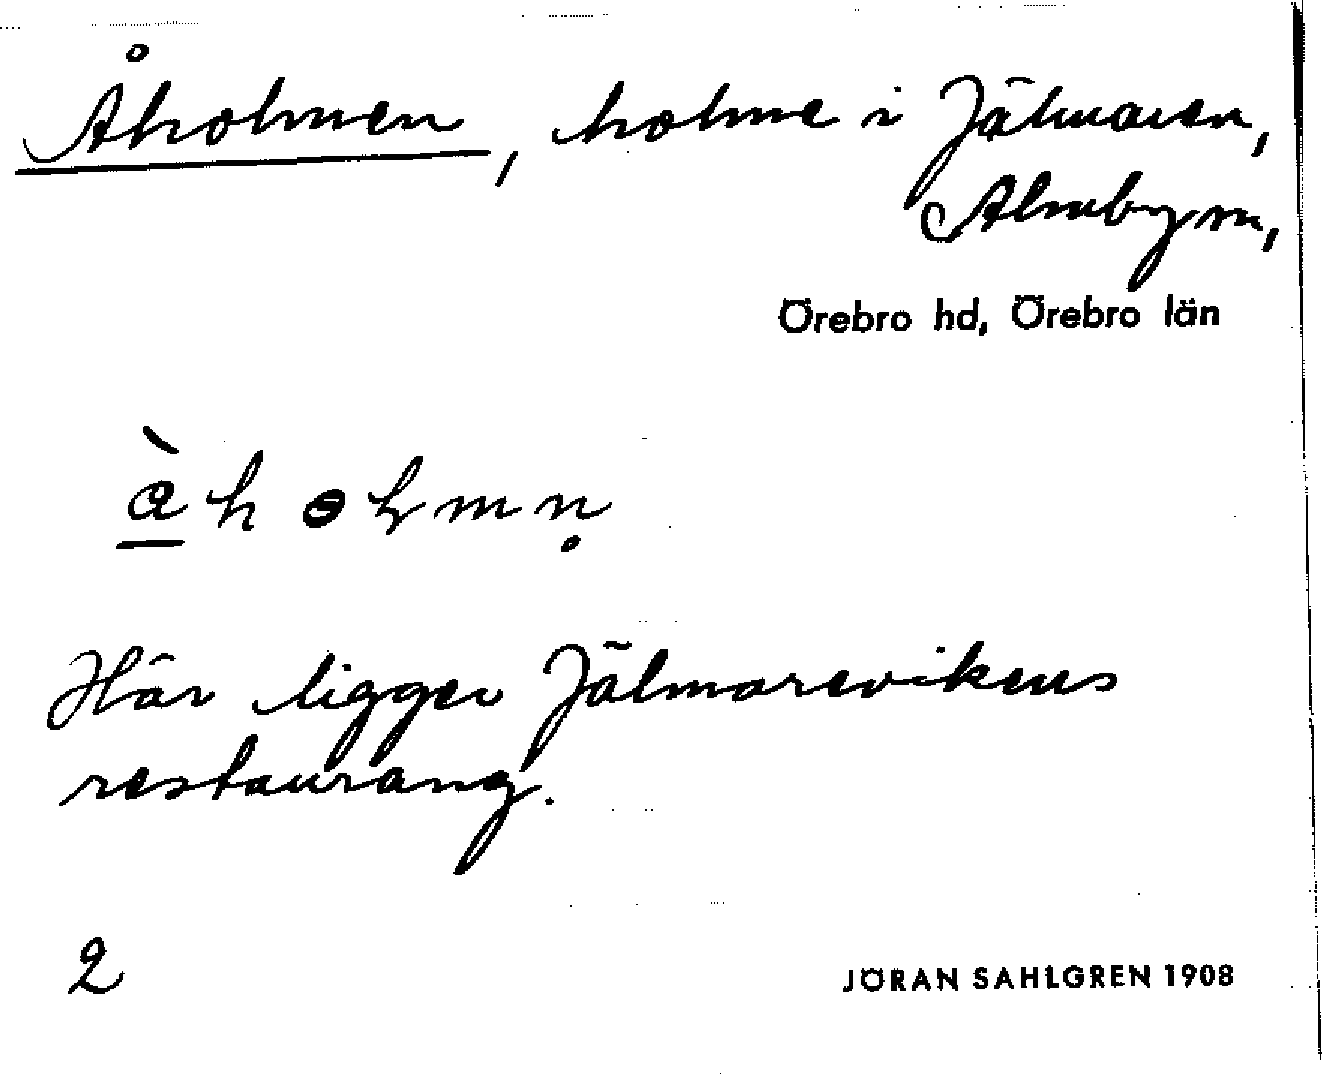 Åholmen, holme i Jälmaren,
Almby sn,
Örebro hd, Örebro län
Här ligger Jälmarevikens
restaurang.
2
JÖRAN SAHLGREN 1908